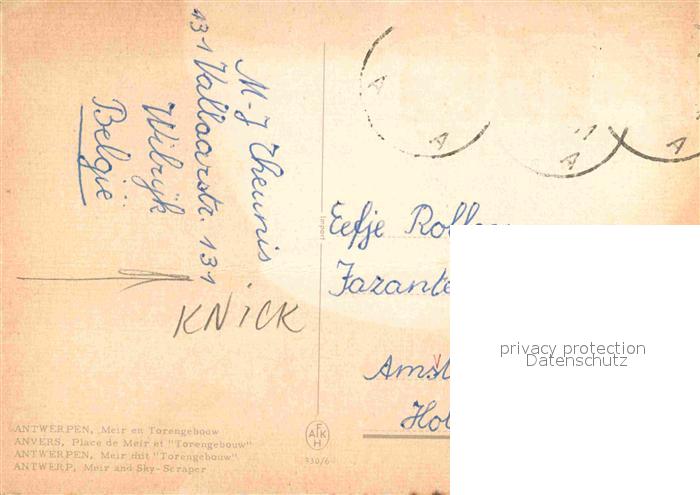 M-J Theunis
131 Vallaarstr. 131
Wilrijk
België
KNiCK
ANTWERPEN, Meir en Torengebouw
ANVERS, Place de Meir et "Torengebouw"
ANTWERPEN, Meir mit "Torengebouw"
ANTWERP, Meir and Sky-Scraper
Import
F
AK
H
330/6
A
A
A
A
Eefje
Jazante
Amst
Hol
privacy protection
Datenschutz